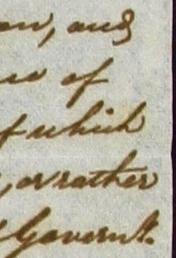 and
of
which
, or rather
Governt.